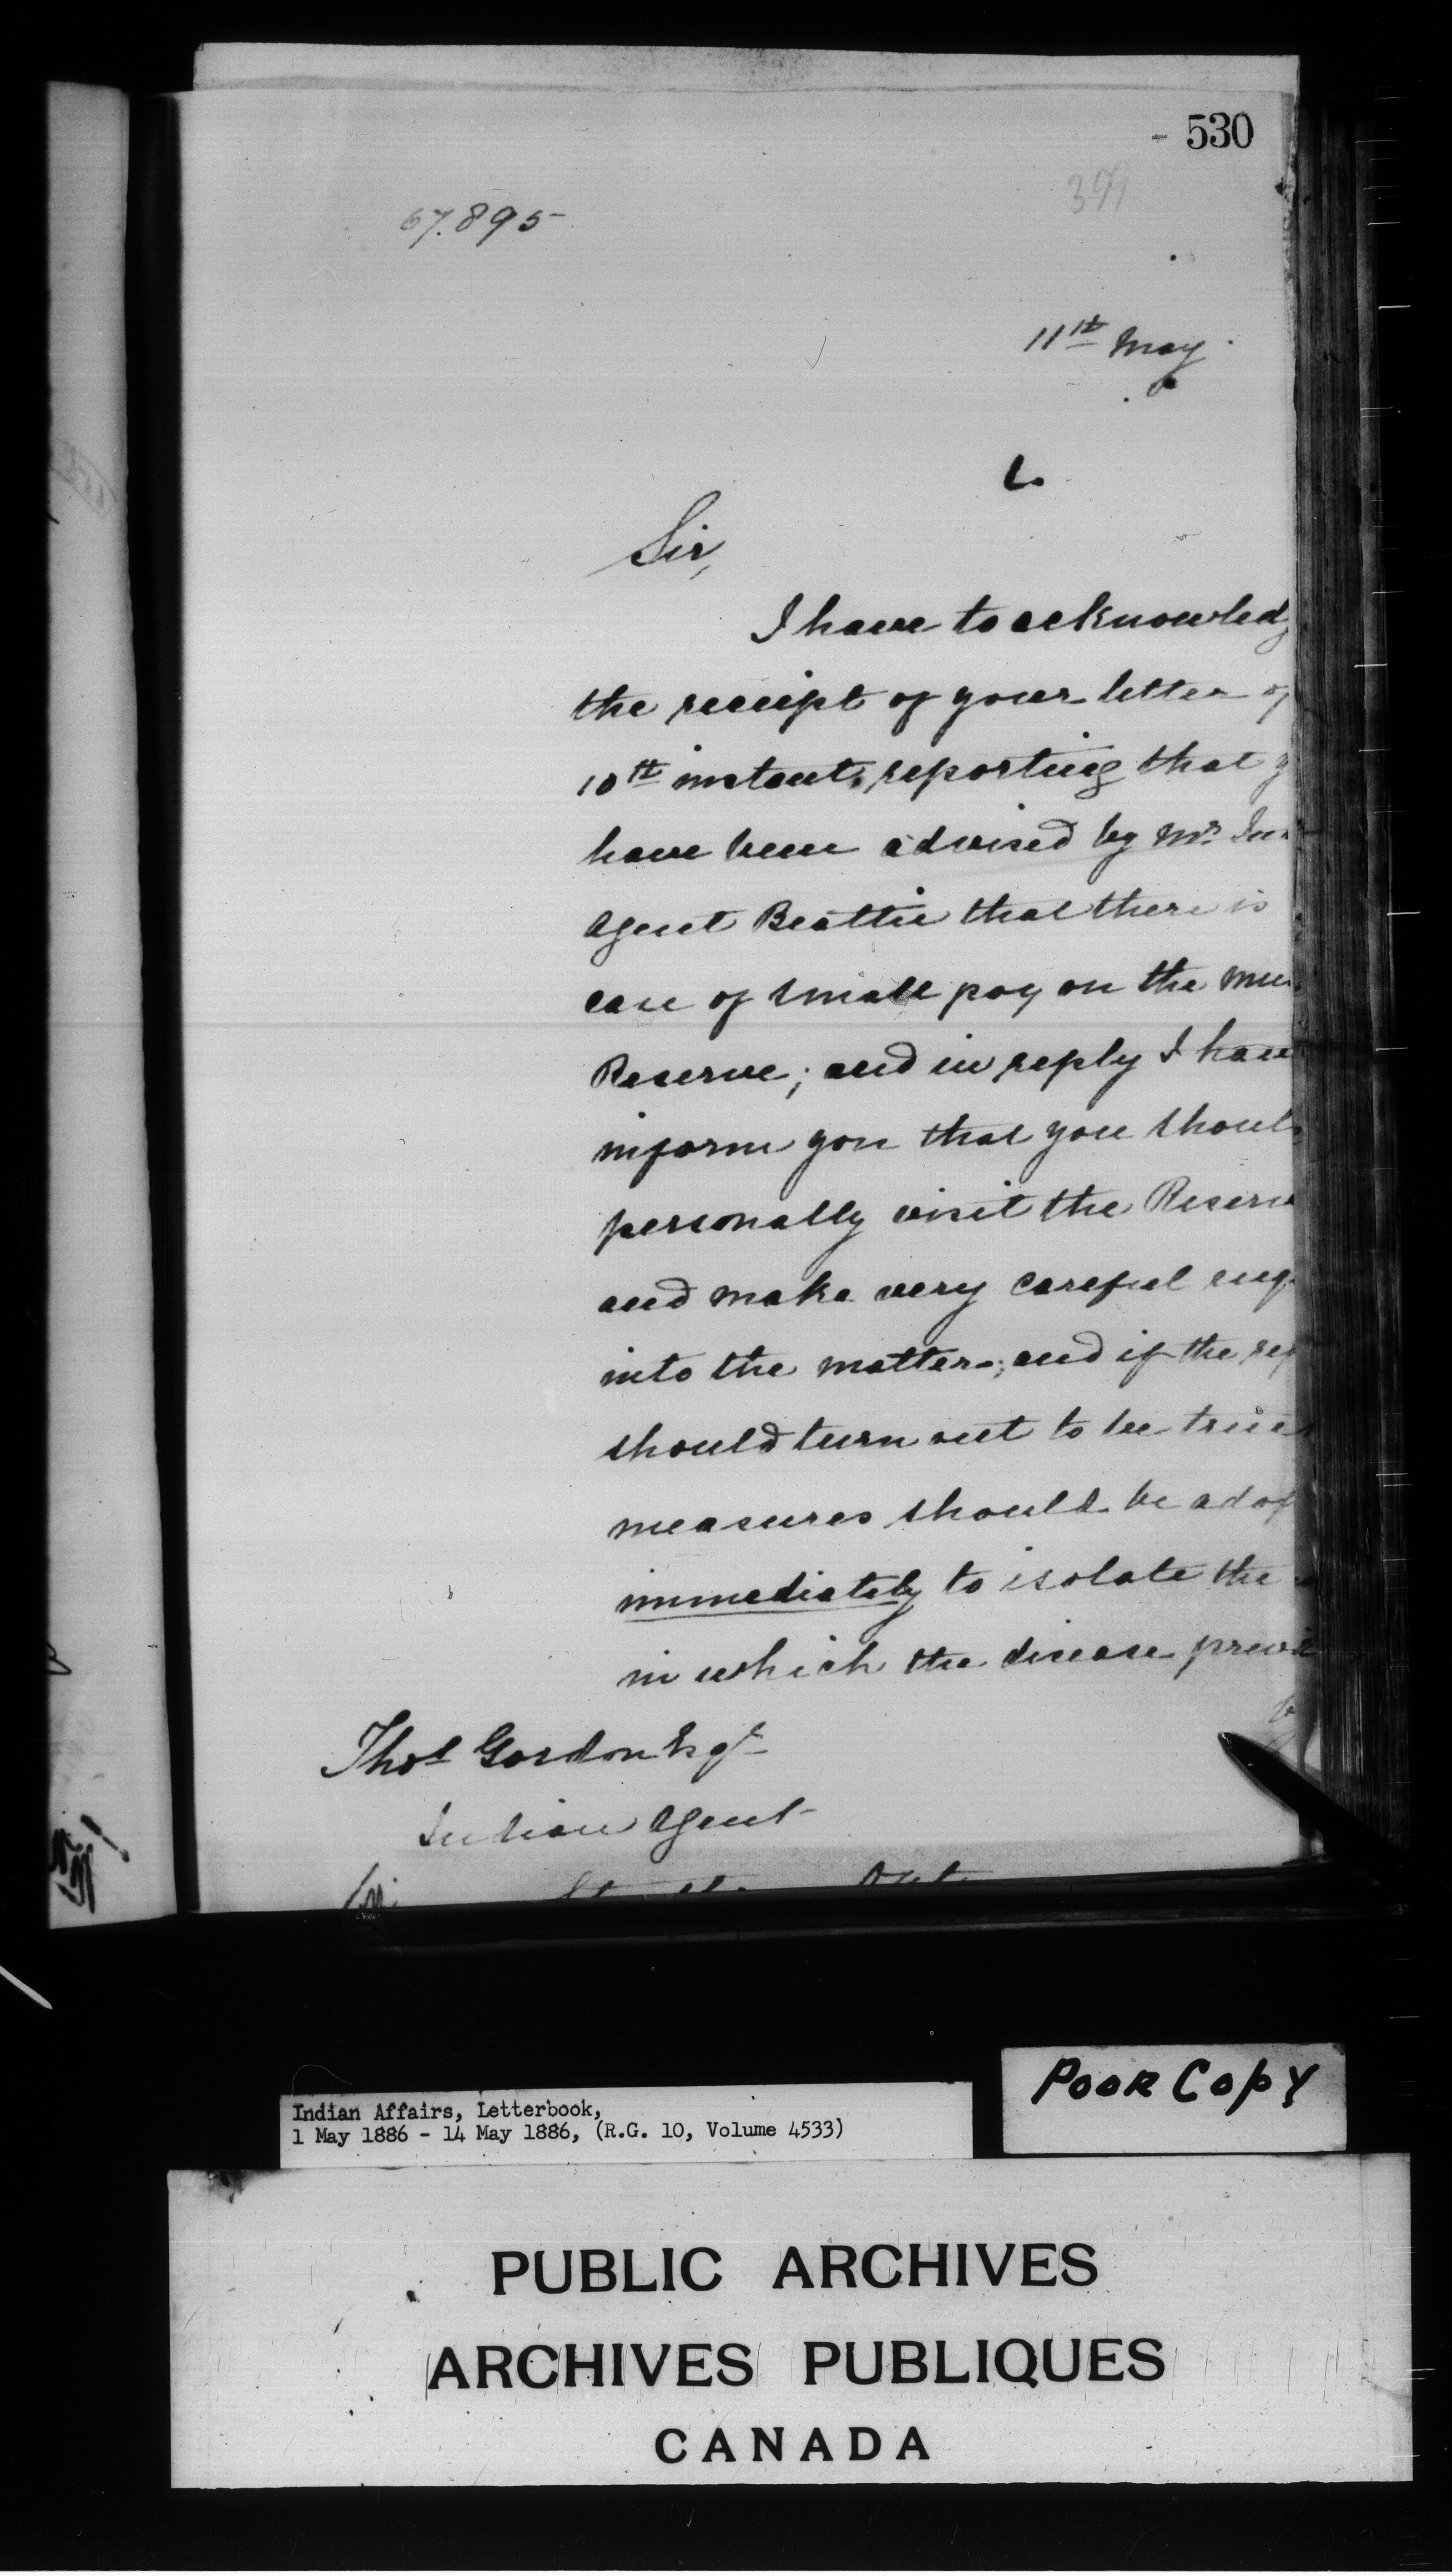 - 530
67.895
11th May.
6.
Sir,
I have to acknowledg
the receipt of your letter of
10th instant, reporting that y
have been advised by Mr. In
Agent Beattie that there is
case of small pox on the Mun
Reserve; and in reply I have
inform you that you should
personally visit the Reserve
and make very careful enq
into the matter; and if the rep
should turn out to be true
measures should be adop
immediately to isolate the
in which the disease preva
Thos Gordon Esqr
Indian Agent
Ont
Indian Affairs, Letterbook,
1 May 1886 - 14 May 1886, (R.G. 10, Volume 4533)
POOR COPY
PUBLIC ARCHIVES
ARCHIVES PUBLIQUES
CANADA